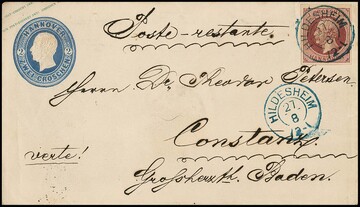 HANNOVER
ZWEI-GROSCHEN
Poste-restante.
HILDESHEIM
Herrn Dr. Theodor Petersen.
HILDESHEIM
27.
8
Constanz
verte!
Großherz.th. Baden.